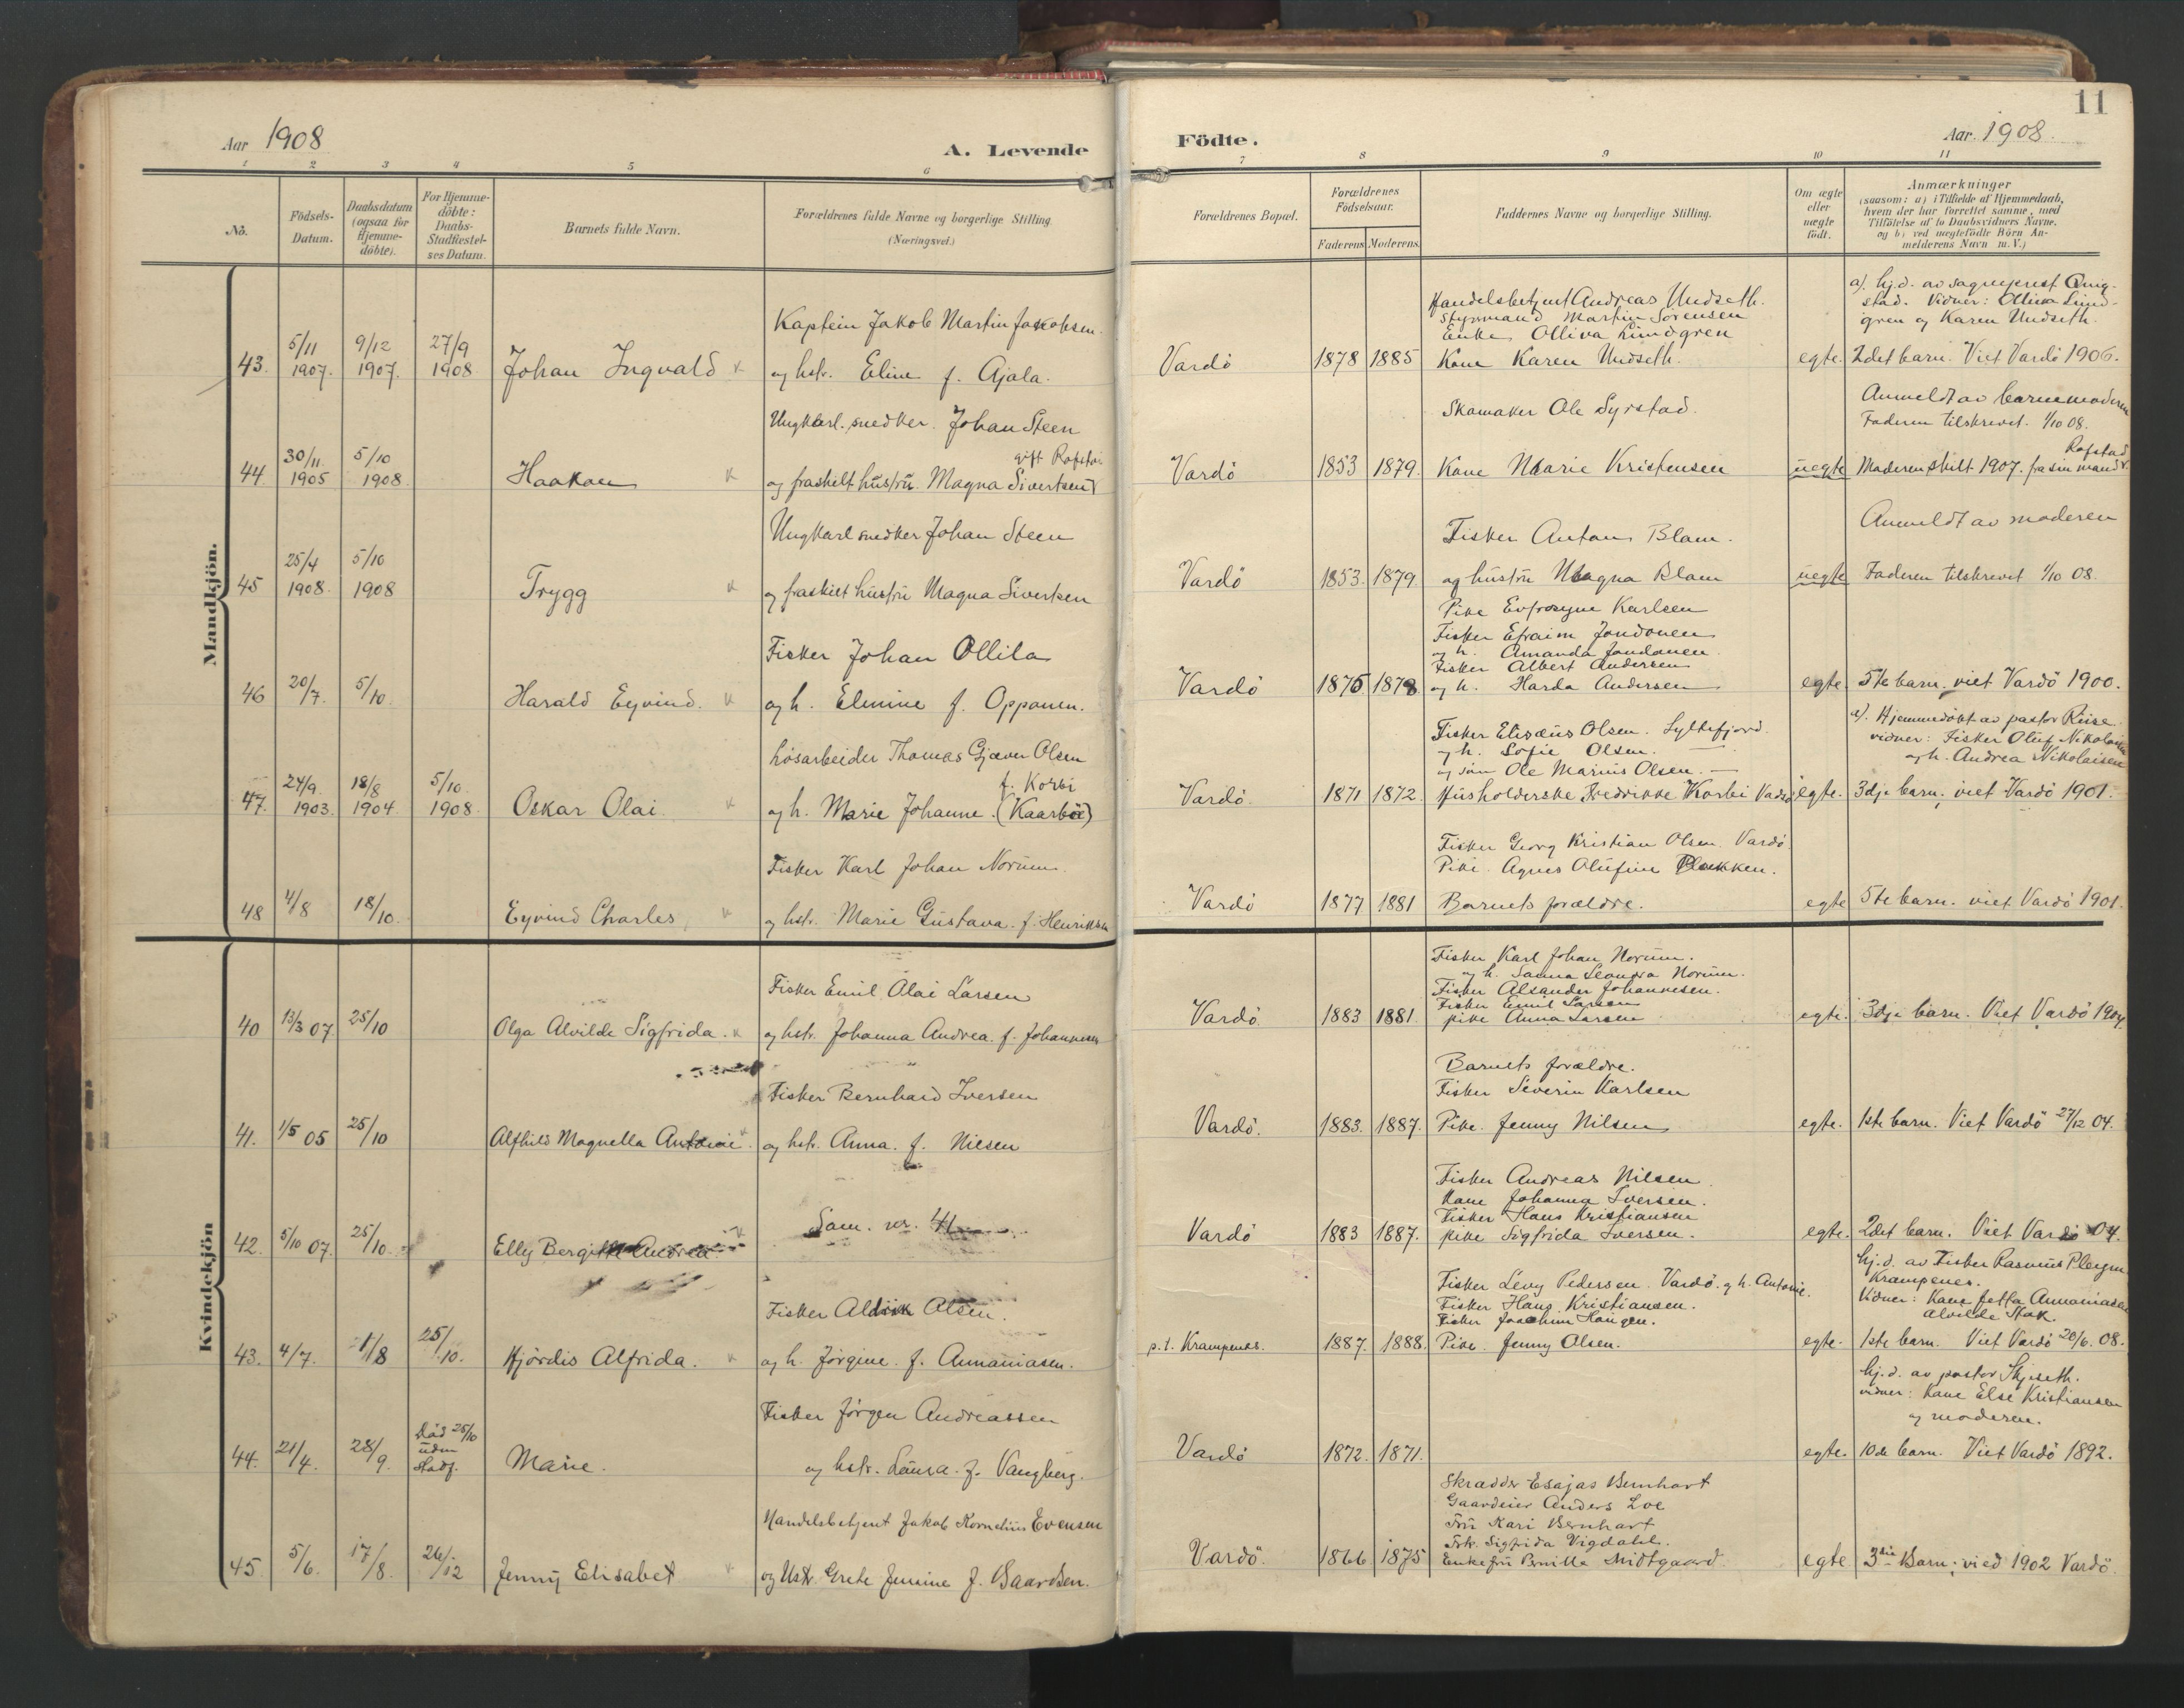 11
Aar 1908
A. Levende
Födte.
Aar 1908.
1 2 3 4 5 6 7 8 9 10 11
No.
Födsels-
Datum.
Daabsdatum
(ogsaa for
Hjemme-
döbte).
For Hjemme-
döbte:
Daabs-
Stadfæstel-
ses Datum.
Barnets fulde Navn.
Forældrenes fulde Navne og borgerlige Stilling
(Næringsvei.)
Forældrenes Bopæl.
Forældrenes
Födselsaar.
Faderens Moderens
Faddernes Navne og borgerlige Stilling.
Om ægte
eller
uægte
födt.
Anmærkninger
(saasom: a) i Tilfælde af Hjemmedaab,
hvem der har forrettet samme, med
Tilföielse af to Daabsvidners Navne.
og b) ved uægtefödte Börn An-
melderens Navn m. V.)
Mandkjön.
43.
5/11
1907.
9/12
1907.
27/9
1908
Johan Ingvald
Kaptein Jakob Martin Jakobsen.
og hstr. Eline f. Ajala.
Vardö
1878 1885
Handelsbetjent Andreas Undseth.
Styrmand Martin Sörensen
Enke Olliva Lindgren
Kone Karen Undseth.
egte.
a). hj.d. av sogneprest
stad. Vidner: Olliva Lind-
gren og Karen Undseth.
2det barn. Viet Vardö 1906.
44
30/11
1905
5/10
1908
Haakon
Ungkarl. snedker. Johan Steen
gift Rofstad
og fraskilt hustru. Magna Sivertsen
Vardö
1853 1879.
Skomaker Ole Syrstad.
Kone Marie Kristensen
uegte
Anmeldt av barnemoderen
Faderen tilskrevet. 1/10 08.
Rofstad
Moderen skilt 1907. fra sin mand
45
25/4
1908.
5/10
1908
Trygg
Ungkarl snedker Johan Steen
og fraskilt hustru Magna Sivertsen
Vardö
1853. 1879.
Fisker Anton Blam.
og hustru Magna Blam
uegte
Anmeldt av moderen
Faderen tilskrevet 1/10 08.
46
20/7.
5/10.
Harald Eyvind.
Fisker Johan Ollila
og h. Elmine f. Opponen.
Vardö
1875 1878
Pike Evfrosyne Karlsen
Fisker Efraim Jondonen
og h. Amanda Jondonen.
Fisker Albert Andersen
og h. Harda Andersen
egte
5te barn. viet Vardö 1900.
47.
24/9.
1903.
18/8
1904.
5/10.
1908.
Oskar Olai.
Lösarbeider Thomas Gjæver Olsen
f. Korbi
og h. Marie Johanne. (Kaarbö)
Vardö.
1871 1872.
Fisker Elisæus Olsen. Syltefjord.
og h. Sofie Olsen. —
og sön Ole Marius Olsen. —
Husholderske Fredrikke Korbi Vadsö
egte.
a). Hjemmedöbt av pastor Riise.
vidner: Fisker Oluf Nikolaisen
og h. Andrea Nikolaisen
3dje barn. viet Vardö 1901.
48
4/8
18/10.
Eyvind Charles
Fisker Karl Johan Norum.
og hstr. Marie Gustava. f. Henriksen
Vardö
1877 1881
Fisker Georg Kristian Olsen. Vardö.
Pike. Agnes Olufine Plukken.
Barnets forældre.
egte
5te barn. viet Vardö 1901.
Kvindekjön
40
13/3 07.
25/10
Olga Alvilde Sigfrida.
Fisker Emil Olai Larsen
og hstr. Johanna Andrea. f. Johannesen
Vardö.
1883 1881.
Fisker Karl Johan Norum.
og h. Sanna Leonora Norum.
Fisker Alsander Johannesen.
Fisker Emil Larsen
pike Anna Larsen
egte.
3dje barn. Viet Vardö 1904.
41.
1/5 05
25/10
Alfhild Magnella Antonie.
Fisker Bernhard Iversen
og hstr. Anna. f. Nilsen
Vardö.
1883. 1887.
Barnets forældre.
Fisker Severin Karlsen
Pike. Jenny Nilsen
egte.
1ste barn. Viet Vardö 27/12 04.
42.
5/10 07.
25/10.
Elly Bergitte Andrea
Som. nr. 41
Vardö
1883 1887.
Fisker Andreas Nilsen.
Kone Johanna Iversen.
Fisker Hans Kristiansen
pike Sigfrida Iversen.
egte.
2det barn. Viet Vardö 04.
43.
4/7.
1/8
25/10.
Hjördis Alfrida.
Fisker Aldrik Olsen.
og h. Jörgine. f. Annaniasen.
p.t. Krampenes.
1887. 1888.
Fisker Levy Pedersen. Vardö. og h. Antonie.
Fisker Hans Kristiansen.
Fisker Joachim Haugen.
Pike. Jenny Olsen.
egte.
hj.d. av Fisker Rasmus Pleym
Krampenes.
Vidner: Kone Jetta Annaniasen
Alvilde Stok.
1ste barn. Viet Vardö 20/6. 08.
44.
21/4.
28/9.
Död 25/10
uden
stadf.
Marie.
Fisker Jörgen Andreassen
og hstr. Laura. f. Vangberg.
Vardö
1872. 1871.
egte.
hj.d. av pastor Skjeseth.
vidner: Kone Else Kristiansen
og moderen.
10de barn. Viet Vardö 1892.
45.
5/6.
17/8.
26/12
Jenny Elisabet
Handelsbetjent Jakob Kornelius Evensen
og Hstr. Grete Jennine f. Baardsen.
Vardö.
1866 1875
Skrædder Esajas Bernhart
Gaardeier Anders Loe
Fru Kari Bernhart
Frk. Sigfrida Vigdahl.
Enkefru Pernille Midtgaard.
egte
3die Barn; vied 1902 Vardö.